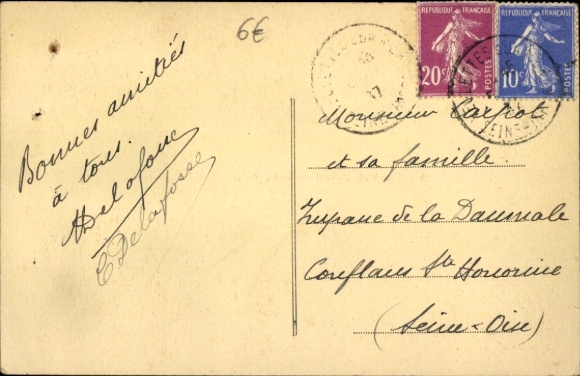 6€
Bonnes amitiés
à tous.
Delafosse
C Delafosse
REPUBLIQUE FRANÇAISE
20c
POSTES
REPUBLIQUE FRANÇAISE
10c
POSTES
37
Monsieur
et sa famille
de la Daumale
Conflans Ste Honorine
(Seine-Oise)